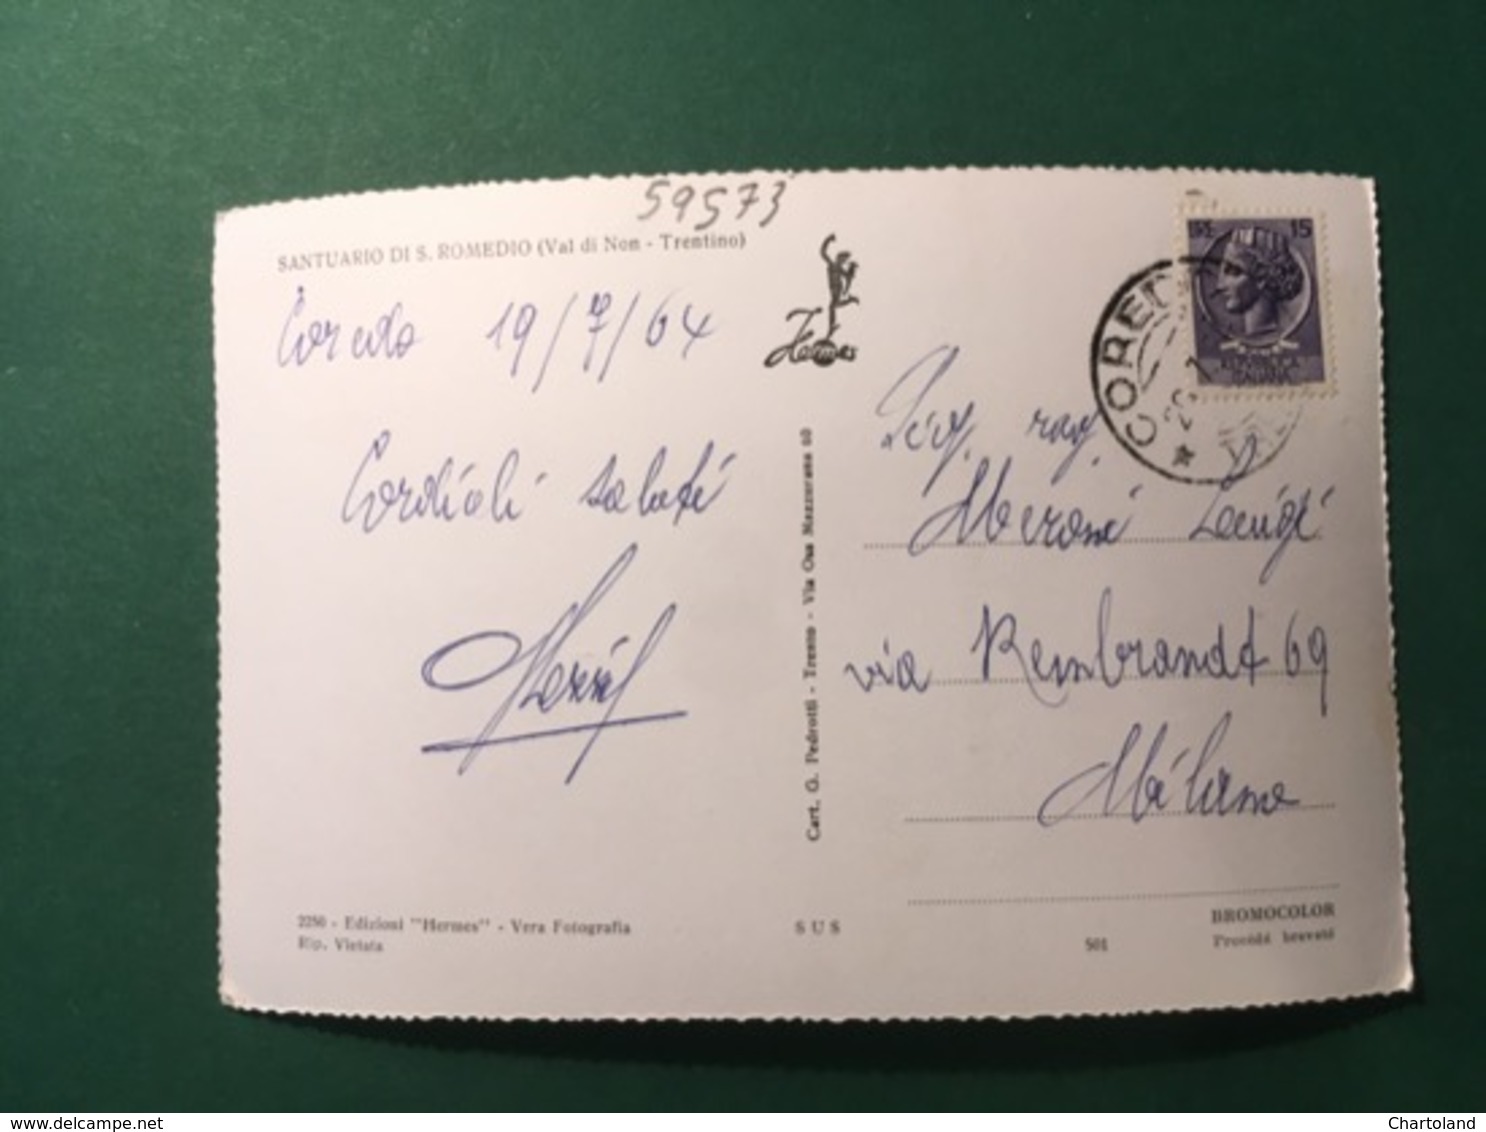 59573
SANTUARIO DI S. ROMEDIO (Val di Non - Trentino)
Coredo 19/7/64
Cordiali saluti
Hermes
LIRE 15
COREDO
20.7
Sig. rag.
Meroni Luigi
via Rembrandt 69
Milano
Cart. G. Pedrotti - Trento - Via Oss Mazzurana 60
2280 - Edizioni "Hermes" - Vera Fotografia
Rip. Vietata
S U S
501
BROMOCOLOR
Procédé breveté
delcampe.net
Chartoland